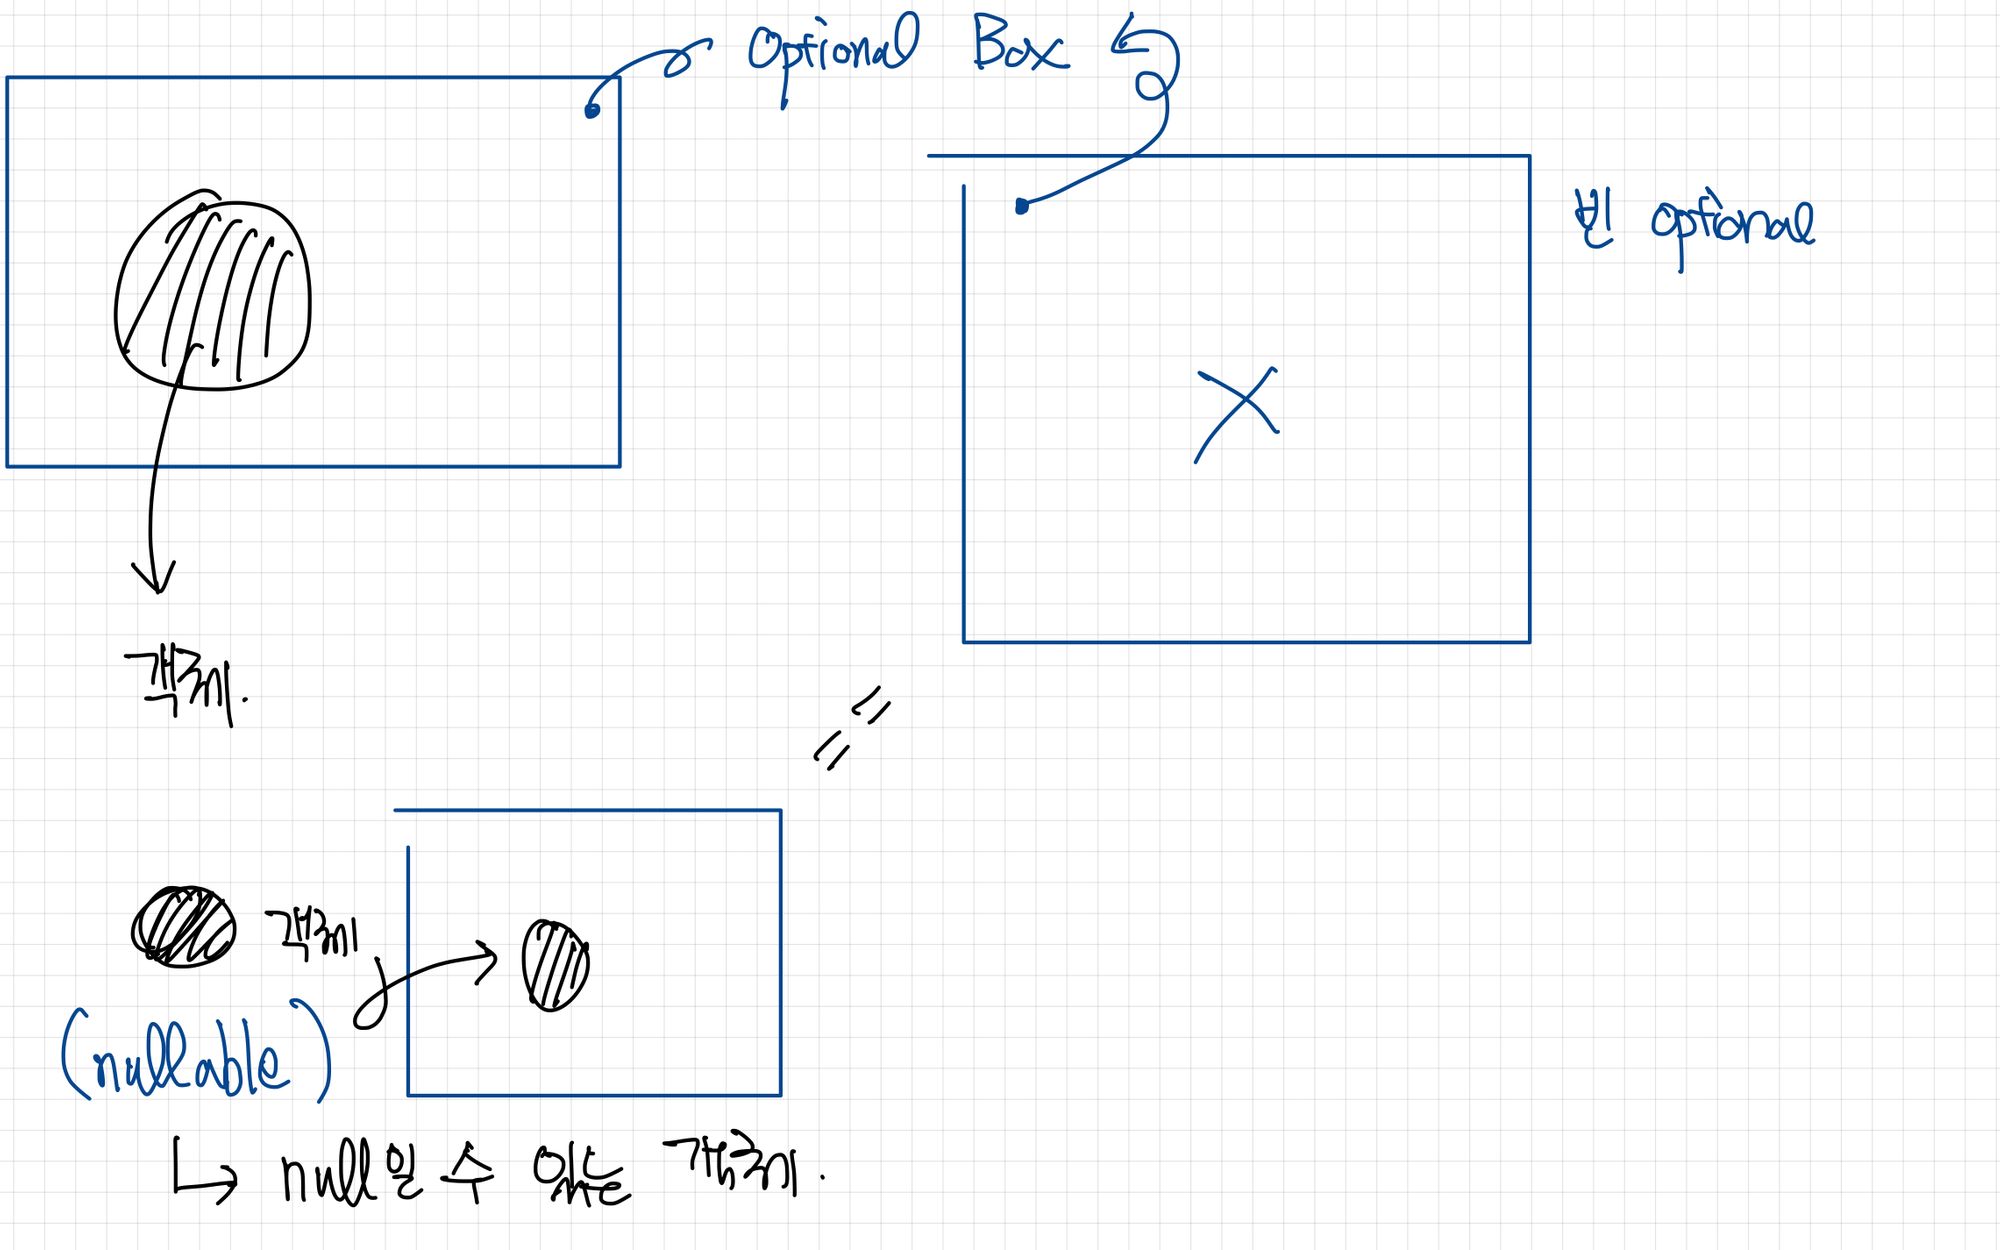 Optional Box
빈 optional
객체.
객체
(nullable)
null일 수 있는 객체.